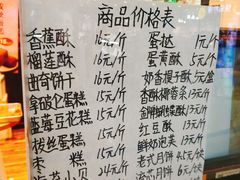 商品价格表
香蕉酥 16元/斤
榴莲酥 16元/斤
曲奇饼干 16元/斤
拿破仑蛋糕 15元/斤
蓝莓豆花糕 15元/斤
肉丝蛋糕 15元/斤
枣糕 15元/斤
海苔小贝 24元/斤
蛋挞 3元/个
蛋黄酥 5元/个
奶香慢手酥 5元/盒
香酥椰蓉条 13元/斤
蝴蝶酥 13元/斤
红豆酥 13元/斤
鲜奶泡芙 13元/斤
老式月饼 4.5元/块